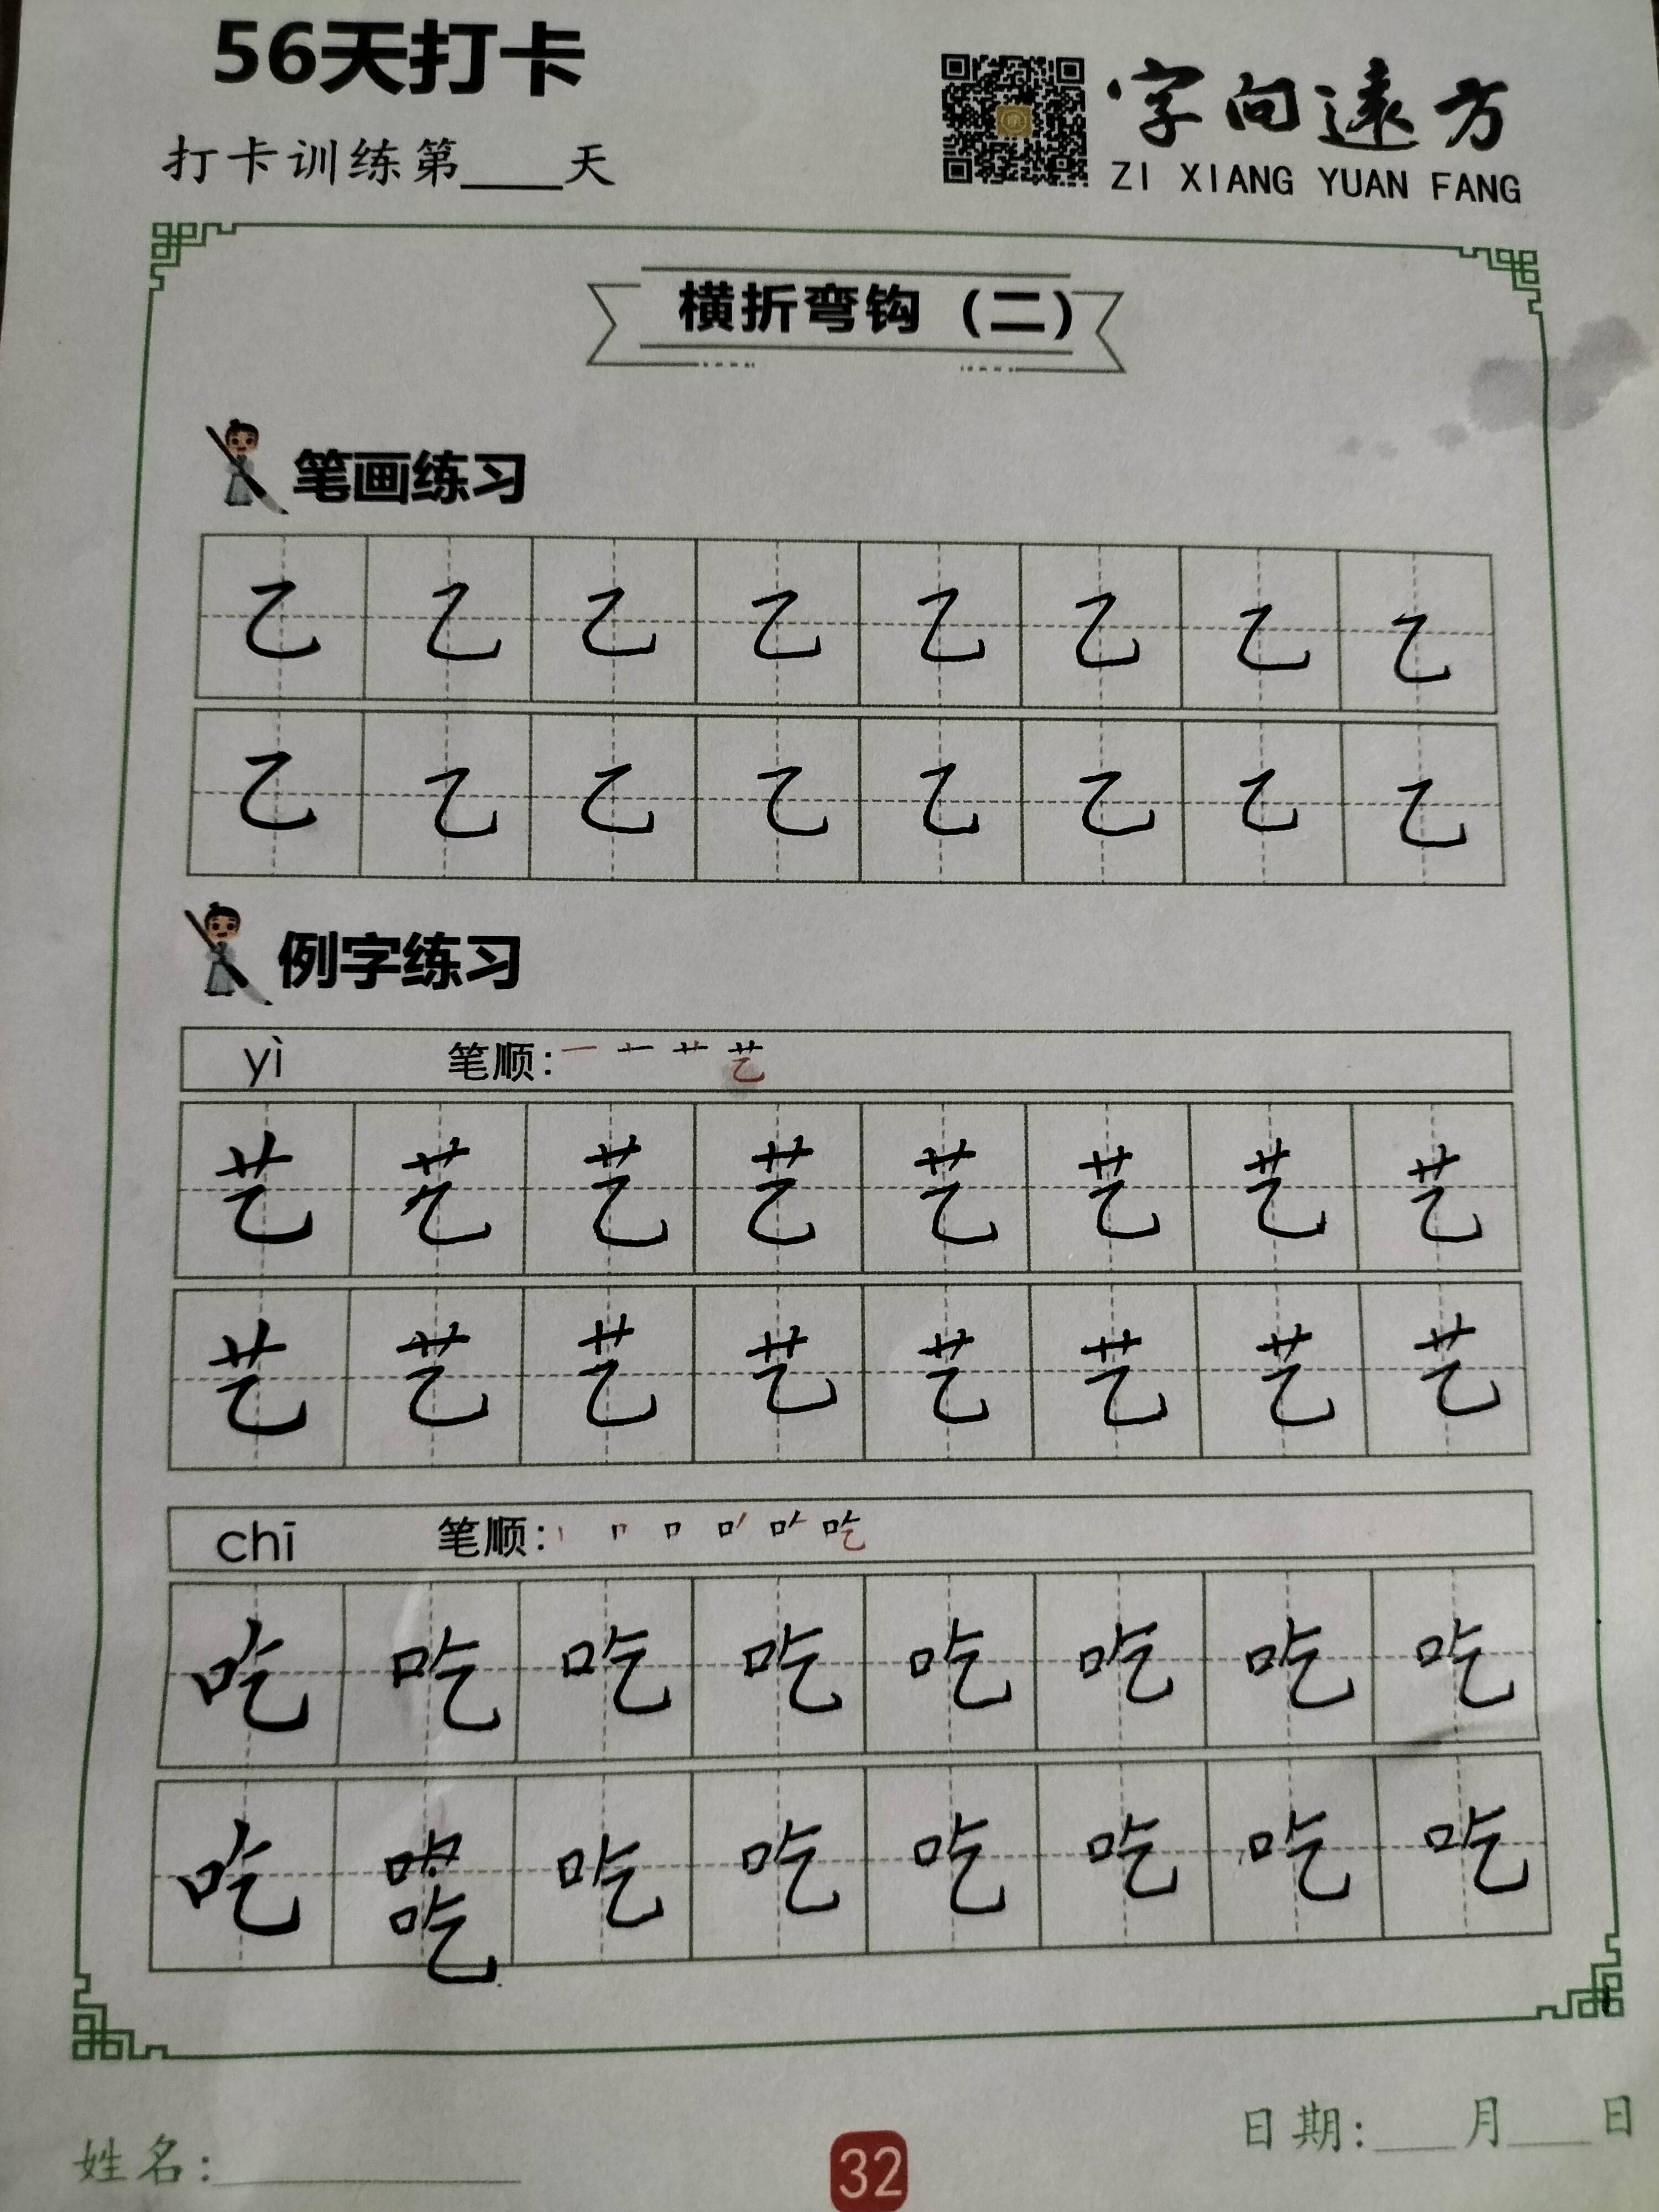 56天打卡
字向遠方
打卡训练第____天
ZI XIANG YUAN FANG
横折弯钩（二）
笔画练习
乙 乙 乙 乙 乙 乙 乙 乙
乙 乙 乙 乙 乙 乙 乙 乙
例字练习
yì 笔顺: 艺
艺 艺 艺 艺 艺 艺 艺 艺
艺 艺 艺 艺 艺 艺 艺 艺
chī 笔顺: 吃
吃 吃 吃 吃 吃 吃 吃 吃
吃 吃 吃 吃 吃 吃 吃 吃
姓名:____ 32 日期:___月___日